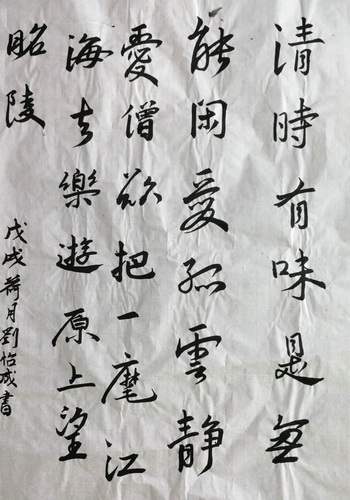 清時有味是無
能閑愛孤雲靜
愛僧欲把一麾江
海去樂遊原上望
昭陵
戊戌荷月劉怡成書